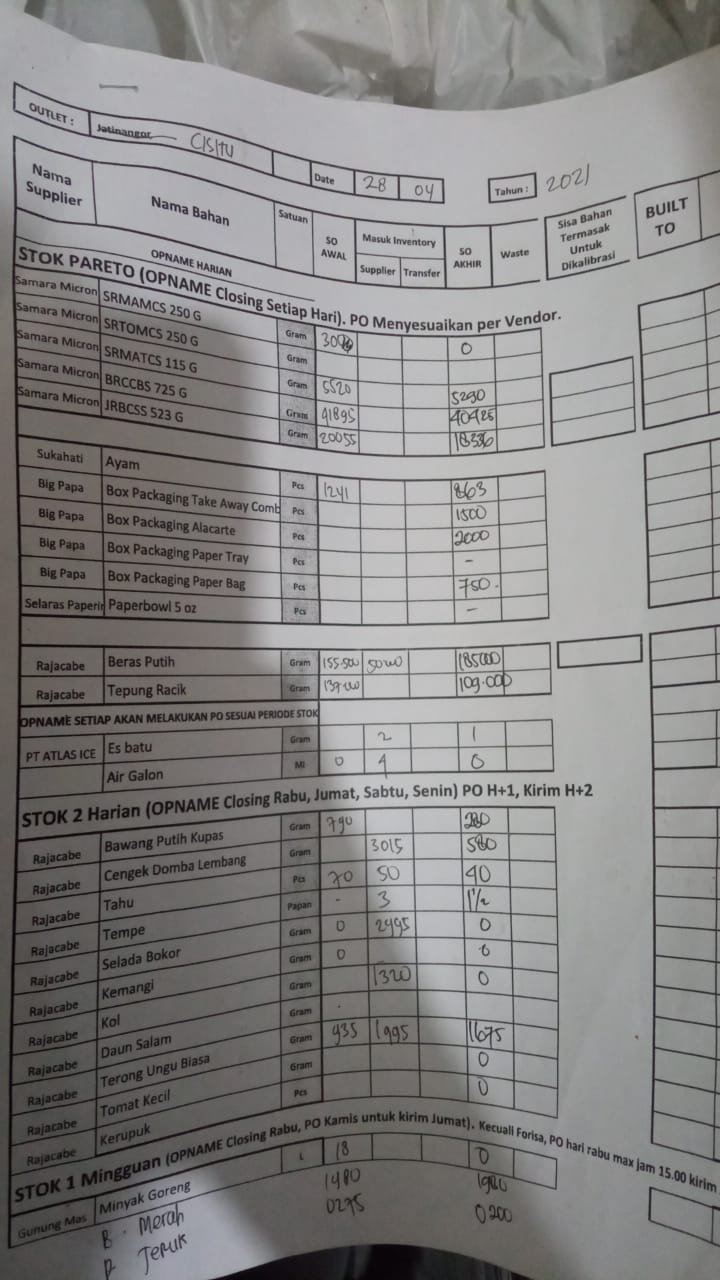 OUTLET : Jatinangor CISITU Date 28 04 Tahun : 2021
Nama Supplier Nama Bahan Satuan SO AWAL Masuk Inventory Supplier Transfer SO AKHIR Waste Sisa Bahan Termasak Untuk Dikalibrasi BUILT TO
OPNAME HARIAN
STOK PARETO (OPNAME Closing Setiap Hari). PO Menyesuaikan per Vendor.
Samara Micron SRMAMCS 250 G Gram 0
Samara Micron SRTOMCS 250 G Gram
Samara Micron SRMATCS 115 G Gram 5520 5290
Samara Micron BRCCBS 725 G Gram 41895 40425
Samara Micron JRBCSS 523 G Gram 20055 18336
Sukahati Ayam Pcs 1241 863
Big Papa Box Packaging Take Away Comb Pcs 1500
Big Papa Box Packaging Alacarte Pcs 2000
Big Papa Box Packaging Paper Tray Pcs -
Big Papa Box Packaging Paper Bag Pcs 750.
Selaras Paperin Paperbowl 5 oz Pcs -
Rajacabe Beras Putih Gram 155.500 50000 185000
Rajacabe Tepung Racik Gram 139.000 109.000
OPNAME SETIAP AKAN MELAKUKAN PO SESUAI PERIODE STOK
PT ATLAS ICE Es batu Gram 2 1
Air Galon Ml 0 4 0
STOK 2 Harian (OPNAME Closing Rabu, Jumat, Sabtu, Senin) PO H+1, Kirim H+2
Rajacabe Bawang Putih Kupas Gram 790 280
Rajacabe Cengek Domba Lembang Gram 3015 580
Rajacabe Tahu Pcs 70 50 40
Rajacabe Tempe Papan - 3 1½
Rajacabe Selada Bokor Gram 0 2495 0
Rajacabe Kemangi Gram 0 0
Rajacabe Kol Gram 1320 0
Rajacabe Daun Salam Gram .
Rajacabe Terong Ungu Biasa Gram 935 1995 1675
Rajacabe Tomat Kecil Gram 0
Rajacabe Kerupuk Pcs 0
STOK 1 Mingguan (OPNAME Closing Rabu, PO Kamis untuk kirim Jumat). Kecuali Forisa, PO hari rabu max jam 15.00 kirim
Gunung Mas Minyak Goreng L 18 0
B. Merah 1480
P. Jeruk 0275 0200